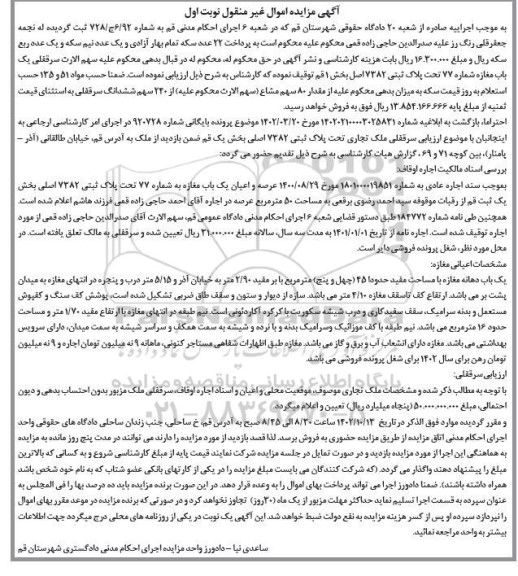 آگهی مزایده اموال غیر منقول نوبت اول
به موجب اجراییه صادره از شعبه ۲۰ دادگاه حقوقی شهرستان قم که در شعبه ۶ اجرای احکام مدنی قم به شماره ۶/۹۲ج/۷۲۸ ثبت گردیده له نجمه
جعفرقلی رنگ رز علیه صدرالدین حاجی زاده قمی محکوم علیه محکوم است به پرداخت ۲۲ عدد سکه تمام بهار آزادی و یک عدد نیم سکه و یک عدد ربع
سکه ریال و مبلغ ۱۶.۳۰۰.۰۰۰ ریال بابت هزینه کارشناسی و نشر آگهی در حق محکوم له، محکوم له در قبال بدهی محکوم علیه سهم الارث سرقفلی یک
باب مغازه شماره ۷۷ تحت پلاک ثبتی ۷۳۸۲ اصل بخش ۱ قم توقیف نموده که کارشناس به شرح ذیل ارزیابی نموده است. ضمنا حسب مواد ۵۱ و ۱۳۵ حسب
استعلام به روز قیمت سکه به میزان بدهی محکوم علیه از مقدار ۸۰ سهم مشاع (سهم الارث محکوم علیه) از ۲۴۰ سهم ششدانگ سرقفلی به استثنای قیمت
ثمنیه از مبلغ پایه ۱۳.۸۵۴.۱۶۶.۶۶۶ ریال فوق به فروش خواهد رسید.
احتراما، بازگشت به ابلاغیه شماره ۱۴۰۲۰۲۱۰۰۰۰۳۰۲۵۸۳۱ مورخ ۱۴۰۲/۰۳/۲۰ موضوع پرونده بایگانی شماره ۹۲۰۷۲۸ در اجرای امر کارشناسی ارجاعی به
اینجانبان با موضوع ارزیابی سرقفلی ملک تجاری تحت پلاک ثبتی ۷۳۸۲ اصلی بخش یک قم ضمن بازدید از ملک به آدرس قم، خیابان طالقانی (آذر –
پامنار)، بین کوچه ۷۱ و ۶۹، گزارش هیات کارشناسی به شرح ذیل تقدیم حضور می گردد:
بررسی اسناد مالکیت اجاره اوقاف:
بموجب سند اجاره عادی به شماره ۱۸۰۱۰۰۰۰۱۹۸۵۱ مورخ ۱۴۰۰/۰۸/۲۹ عرصه و اعیان یک باب مغازه به شماره ۷۷ تحت پلاک ثبتی ۷۳۸۲ اصلی بخش
یک ثبت قم از رقبات موقوفه سید احمد رضوی برقعی به مساحت ۵۰ مترمربع عرصه در اجاره آقای احمد حاجی زاده قمی فرزند هاشم اعلام شده است.
همچنین طی نامه شماره ۱۸۴۷۷۲ طبق دستور قضایی شعبه ۶ اجرای احکام مدنی دادگاه عمومی قم، سهم الارث آقای صدرالدین حاجی زاده قمی از مورد
اجاره توقیف شده است. اجاره نامه از تاریخ ۱۴۰۱/۰۱/۰۱ به مدت سه سال، سالانه مبلغ ۳۱.۰۰۰.۰۰۰ ریال تعیین شده و سرقفلی به مالک تعلق یافته است. در
محل مورد نظر، شغل پرونده فروشی دایر است.
مشخصات اعیانی مغازه:
یک باب دهانه مغازه با مساحت مفید حدودا ۴۵ (چهل و پنج) مترمربع با بر مفید ۲/۹۰ متر به خیابان آذر و ۵/۱۵ متر درب و پنجره در انتهای مغازه به میدان
پشت بر می باشد. ارتفاع کف تا سقف مغازه ۴/۱۰ متر می باشد. سازه از دیوار و ستون و سقف طاق ضربی تشکیل شده است، پوشش کف سنگ و کفپوش
مستعمل و بدنه سرامیک، سقف سفیدکاری و درب شیشه سکوریت با کرکره آکاردئونی است. نیم طبقه در انتهای مغازه با ارتفاع مفید ۱/۷۰ متر و مساحت
حدود ۱۶ مترمربع می باشد. نیم طبقه با کف موزائیک و سرامیک بدنه و با نرده و شیشه به سمت همکف و سراسر شیشه به سمت میدان، دارای سرویس
بهداشتی می باشد. مغازه دارای انشعاب آب و برق و گاز می باشد. مغازه طبق اظهارات شفاهی مستاجر کنونی، ماهانه ۹ نه میلیون تومان اجاره و ۹ نه میلیون
تومان رهن برای سال ۱۴۰۲ برای شغل پرونده فروشی می باشد.
ارزیابی سرقفلی:
با توجه به مطالب ذکر شده و مشخصات ملک تجاری موصوف، موقعیت محلی و اعیان و اسناد اجاره اوقاف، سرقفلی ملک مزبور بدون احتساب بدهی و دیون
احتمالی، مبلغ ۵۰.۰۰۰.۰۰۰.۰۰۰ (پنجاه میلیارد ریال) تعیین و اعلام میگردد.
و مقرر گردیده موارد فوق الذکر در تاریخ ۱۴۰۲/۱۰/۱۳ ساعت ۸/۳۰ الی ۸/۴۵ صبح به آدرس قم، خ ساحلی، جنب زندان ساحلی دادگاه های حقوقی واحد
اجرای احکام مدنی اتاق مزایده از طریق مزایده حضوری به فروش برسد. لذا قصد بازدید از مورد مزایده را دارند می توانند در مدت پنج روز مانده به مزایده
به هماهنگی این اجرا از مورد مزایده بازدید و در صورت تمایل در جلسه مزایده شرکت نمایند قیمت پایه از مبلغ کارشناسی شروع و به کسانی که بالاترین
مبلغ را پیشنهاد دهند واگذار می گردد. (که شرکت کنندگان می بایست مبلغ مزایده را در یکی از کارتهای بانکی عضو شتاب که به نام خود شخص باشد
همراه داشته باشند). ضمنا دادورز اجرا می تواند پرداخت بهای اموال را به وعده قرار دهد. در این صورت برنده مزایده باید ده درصد بها را فی المجلس به
عنوان سپرده به قسمت اجرا تسلیم نماید حداکثر مهلت مزبور از یک ماه (۳۰روز) تجاوز نخواهد کرد و در صورتی که برنده مزایده در موعد مقرر بهای اموال
را نپردازد سپرده او پس از کسر هزینه مزایده به نفع دولت ضبط خواهد شد. این آگهی یک نوبت در یکی از روزنامه های محلی درج میگردد جهت اطلاعات
بیشتر به واحد مراجعه نمائید.
ساعدی نیا – دادورز واحد مزایده اجرای احکام مدنی دادگستری شهرستان قم